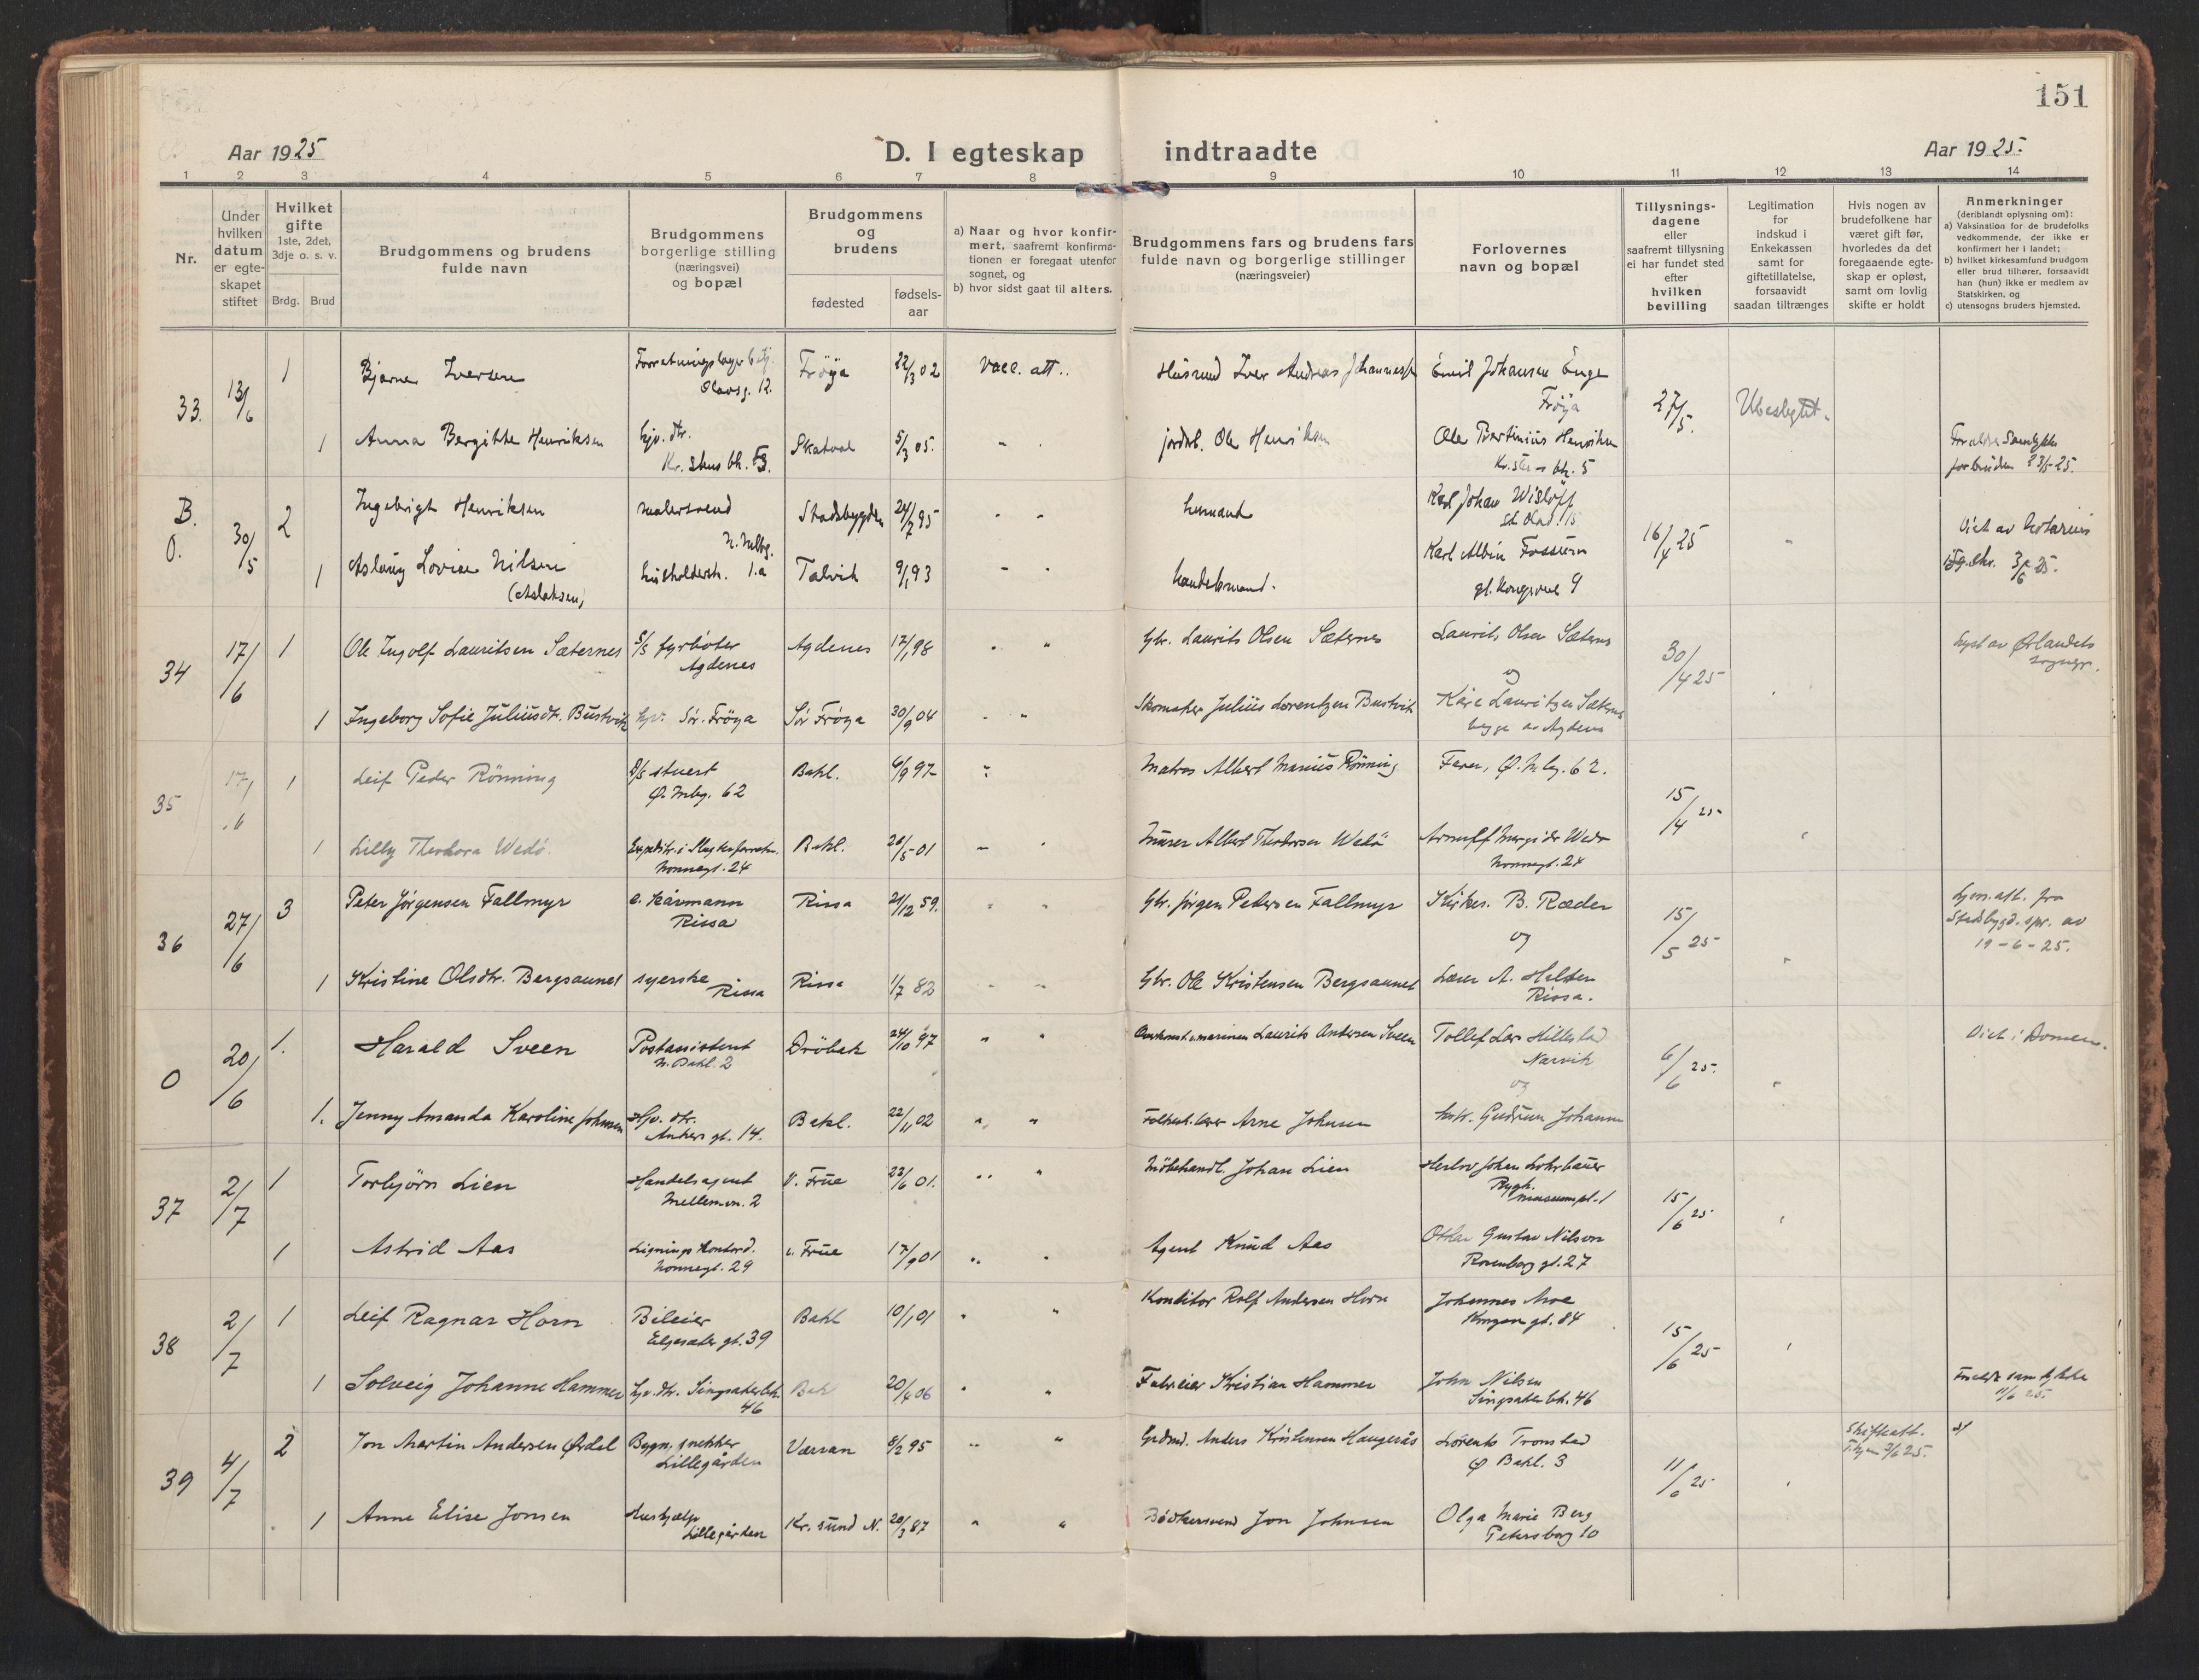 151
Aar 1925
D. I egteskap indtraadte
Aar 1925.
1 2 3 4 5 6 7 8 9 10 11 12 13 14
Nr.
Under
hvilken
datum
er egte-
skapet
stiftet
Hvilket
gifte
1ste, 2det,
3dje o. s. v.
Brdg. Brud
Brudgommens og brudens
fulde navn
Brudgommens
borgerlige stilling
(næringsvei)
og bopæl
Brudgommens
og
brudens
fødested
fødsels-
aar
a) Naar og hvor konfir-
mert, saafremt konfirma-
tionen er foregaat utenfor
sognet, og
b) hvor sidst gaat til alters.
Brudgommens fars og brudens fars
fulde navn og borgerlige stillinger
(næringsveier)
Forlovernes
navn og bopæl
Tillysnings-
dagene
eller
saafremt tillysning
ei har fundet sted
efter
hvilken
bevilling
Legitimation
for
indskud i
Enkekassen
samt for
giftetillatelse,
forsaavidt
saadan tiltrænges
Hvis nogen av
brudefolkene har
været gift før,
hvorledes da det
foregaaende egte-
skap er opløst,
samt om lovlig
skifte er holdt
Anmerkninger
(deriblandt oplysning om):
a) Vaksination for de brudefolks
vedkommende, der ikke er
konfirmert her i landet;
b) hvilket kirkesamfund brudgom
eller brud tilhører, forsaavidt
han (hun) ikke er medlem av
Statskirken, og
c) utensogns bruders hjemsted.
33. 13/6 1 Bjarne Iversen
Olavsg. 12.
Fröya 22/3 02 vacc. att.. Husmd Iver Andreas Johannessen Emil Johansen Enge
Fröya
27/5. Ubeslegtet.
1 Anna Bergitte Henriksen hjv. dtr.
Skatval 5/3 05. " " jordbr. Ole Henriksen Ole Bertinius Henriksen
B.
O. 30/5 2 Ingebrigt Henriksen malersvend
Stadsbygden 24/7 95 " " Karl Johan Wisløff
16/4 25 "
1 Aslaug Lovise Nilsen
(Aslaksen)
1.a Talvik 9/1 93 " " handelsmand. Karl Albin Fossum
gl. Kongevei 9
34 17/6 1 Ole Ingolf Lauritsen Sæternes S/S fyrbøter
Agdenes
Agdenes 17/1 98 " " Gbr. Laurits Olsen Sæternes Laurits Olsen Sæternes
og
30/4 25 Lyst av Ørlandets
sognepr.
1 Ingeborg Sofie Juliusdtr. Bustvik hjv. Sör-Fröya Sör Fröya 30/9 04 " " Skomaker Julius Lorentzen Bustvik Kåre Lauritzen Sæternes
begge av Agdenes
35 17/6 1 Leif Peder Rönning D/S stuert
Ø. Mbg. 62
Bakl. 6/9 97 " Matros Albert Marius Rönning Faren, Ø. Mbg. 62.
15/4 25
1 Lilly Theodora Wedö.
Nonnegt. 24
Bakl. 26/5 01 " " Murer Albert Theodorsen Wedö
Nonnegt. 24
36 27/6 3 Peter Jörgensen Fallmyr e. kårmann
Rissa
Rissa 21/12 59. " " Gbr. Jörgen Pedersen Fallmyr Kirkes. B. Ræder
og
15/5 25 Lysn. att. fra
Stadsbygd. spr. av
19-6-25.
1 Kristine Olsdtr. Bergsaunet syerske
Rissa
Rissa 1/7 82 " " Gbr. Ole Kristensen Bergsaunet Lærer A. Helsen
Rissa.
O 20/6 1. Harald Sveen Postassistent
N. Bakl. 2
Dröbak 24/10 97 " " Laurits Andersen Sveen
Narvik
og
6/6 25. Viet i Domen.
1. Jenny Amanda Karoline Johnsen Hjv. dtr.
Ankers gt. 14.
Bakl. 22/11 02 " " Folkesk.lærer Arne Johnsen Gudrun Johansen
37 2/7 1 Torbjörn Lien Handelsagent
Mellemvn. 2
V. Frue 23/6 01. " " Möbelhandl. Johan Lien
15/6 25
1 Astrid Aas Lignings Kontord.
Nonnegt. 29
v. Frue 17/9 01 " " Agent Knud Aas Othar Gustav Nilsen
Rosenborg gt. 27
38 2/7 1 Leif Ragnar Horn Bileier
Elgesæter gt. 39
Bakl 10/1 01 " " Konditor Rolf Andersen Horn Johannes Moe
Kongens gt. 84
15/6 25
1 Solveig Johanne Hammer hjv. dtr. Singsakerbk.
46
Bak 20/4 06 " " Fabr.eier Kristian Hammer John Nilsen
Singsakerbk. 46
11/6 25.
39 4/7 2 Jon Martin Andersen Ørdal Bygn. snekker
Lillegården
Værran 8/2 95 " " Grdmd. Anders Kristensen Haugerås Lorents Tronstad
Ø Bakl. 3
11/6 25 Skifteatt.
1 Anne Elise Jonsen Hushjelp
Lillegården
Kr. sund N. 20/3 87 " " Bödkersvend Jon Johnsen Olga Marie Berg
Petersborg 10